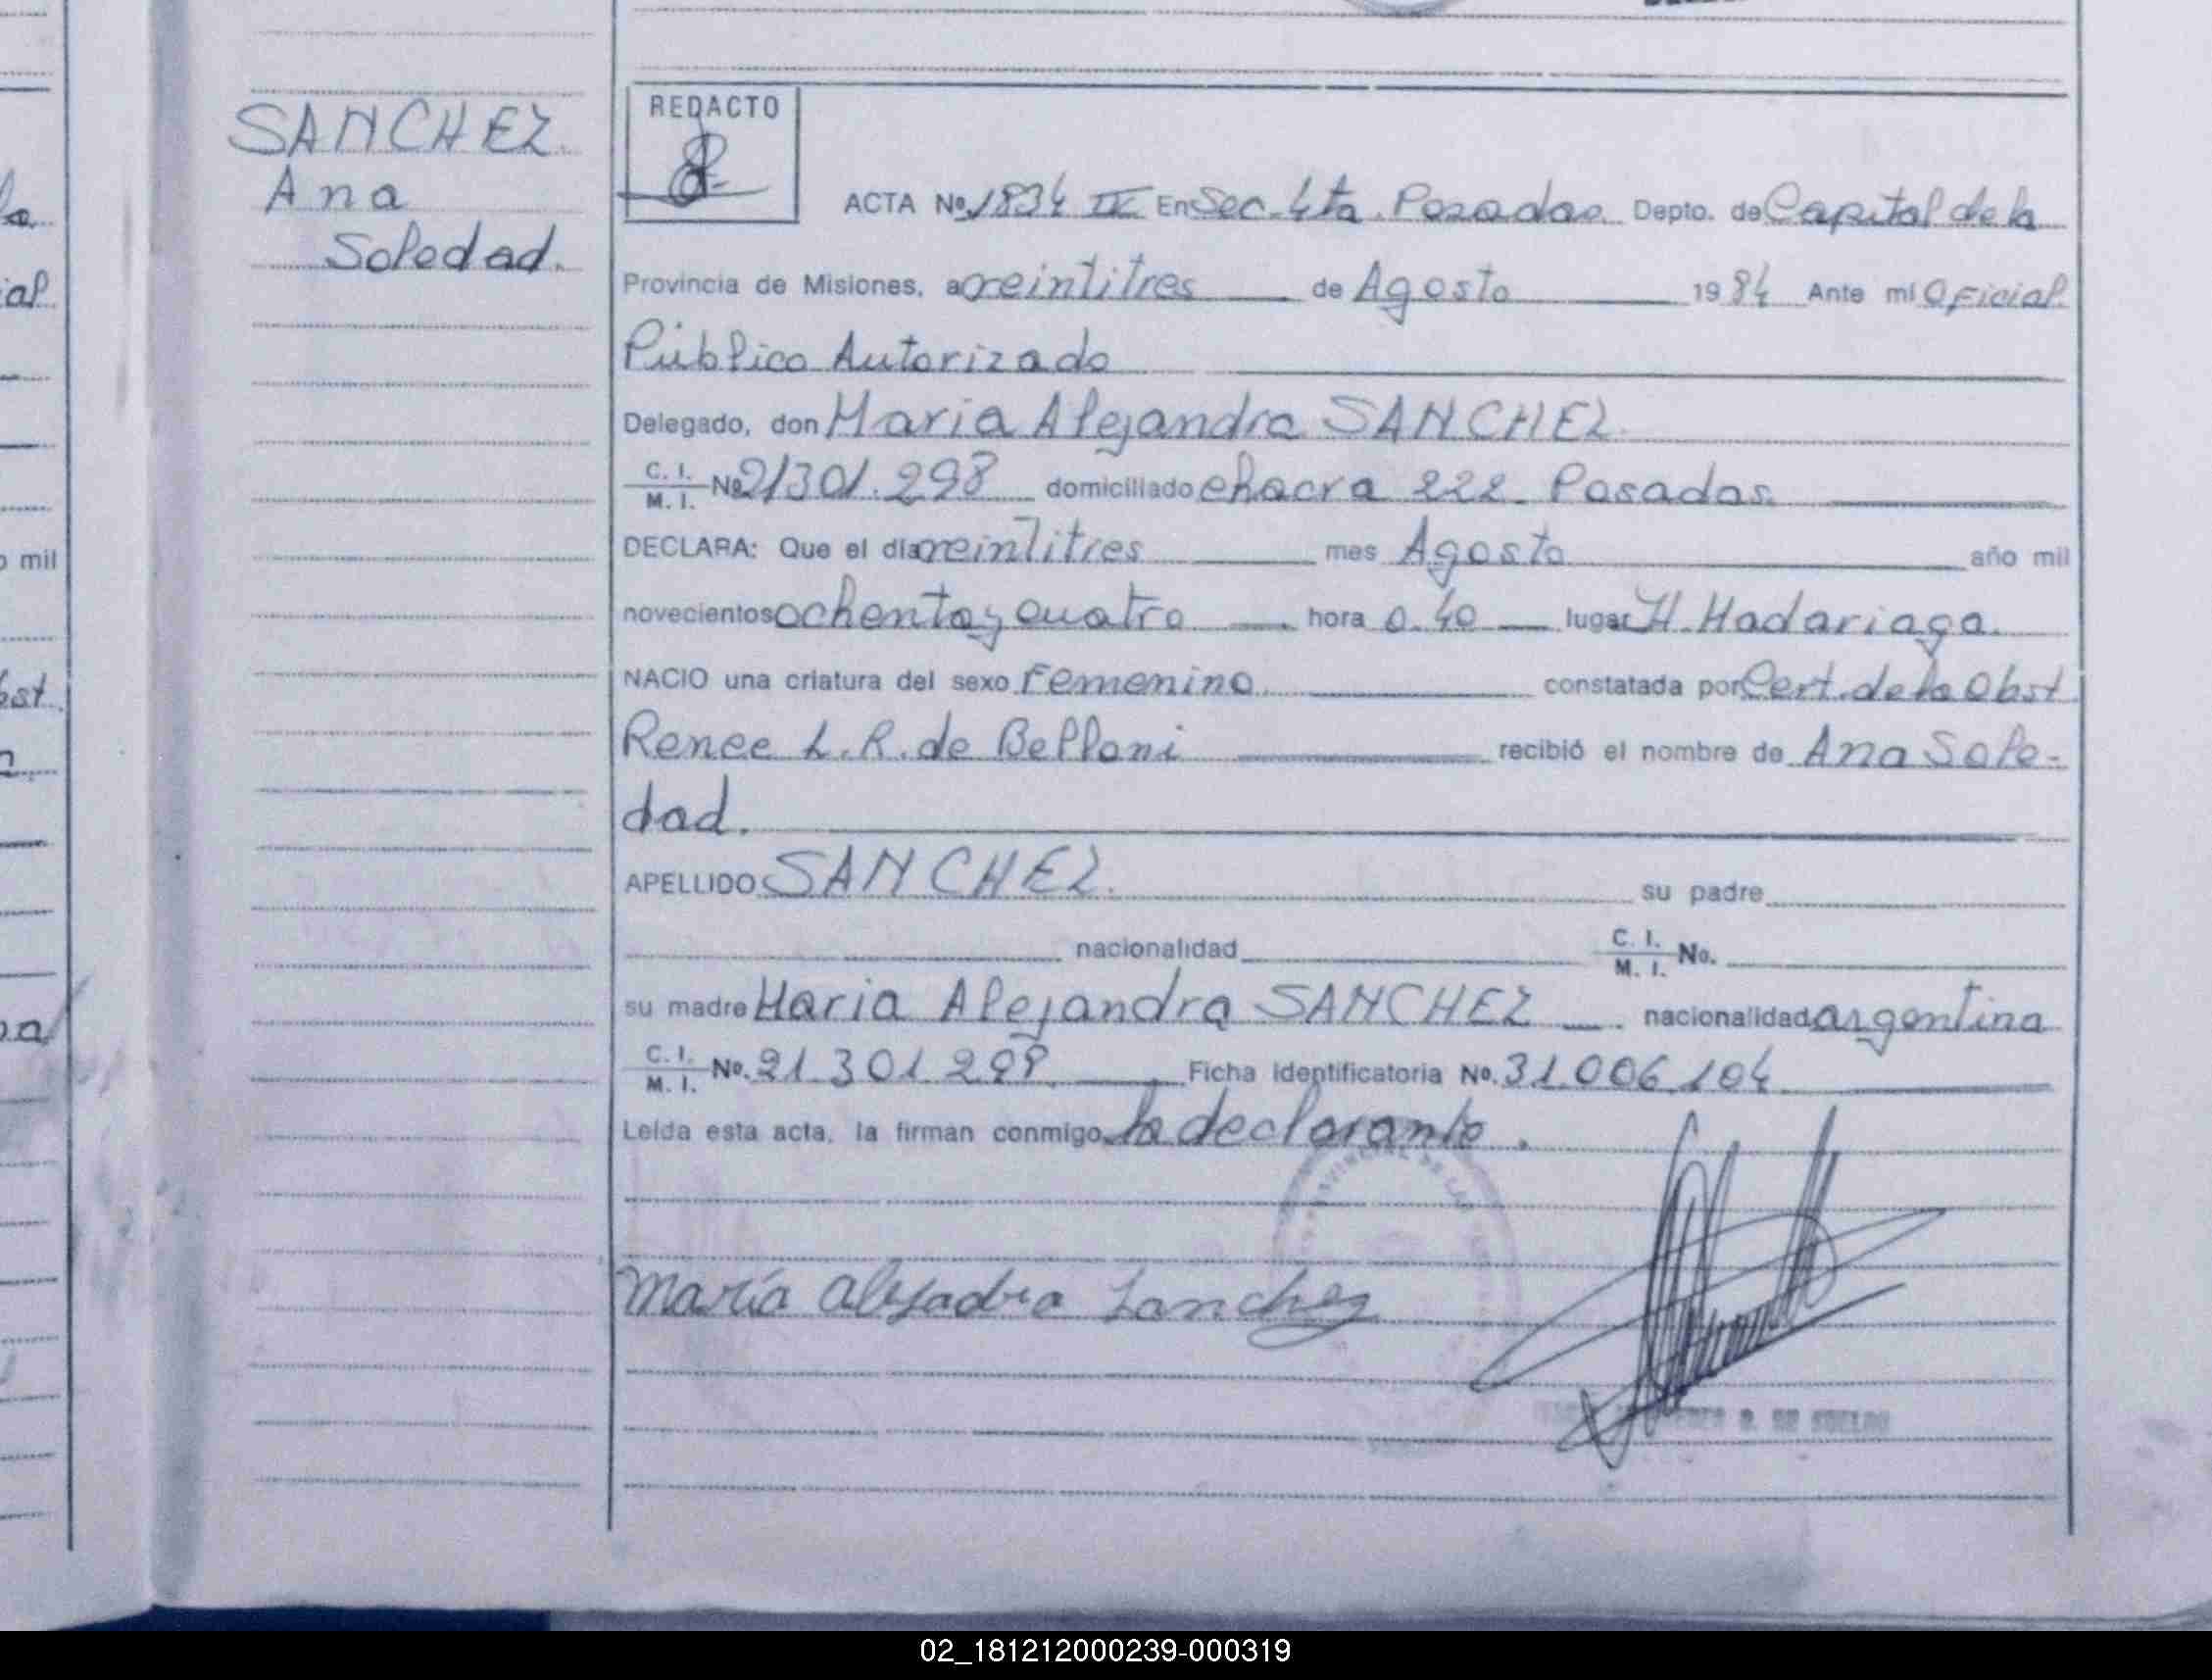 SANCHEZ.
Ana
Soledad.
REDACTO
ACTA Nº 1834 IV En Sec. 4ta. Posadas. Depto. de Capital de la
Provincia de Misiones, a veintitres de Agosto 1984 Ante mi Oficial
Público Autorizado
Delegado, don Maria Alejandra SANCHEZ.
C. I. M. I. Nº 21301.298 domiciliado chacra 222 Posadas.
DECLARA: Que el día veintitres mes Agosto año mil
novecientos ochenta y cuatro hora 0.40 lugar H. Madariaga.
NACIO una criatura del sexo Femenino. constatada por Cert. de la Obst
Renee L. R. de Belloni recibió el nombre de Ana Sole-
dad.
APELLIDO SANCHEZ. su padre
nacionalidad C. I. M. I. No.
su madre Maria Alejandra SANCHEZ nacionalidad argentina
C. I. M. I. No. 21.301.298. Ficha Identificatoria No. 31.006.104
Leída esta acta, la firman conmigo la declarante.
María Alejadra Sanchez
o mil
02_181212000239-000319